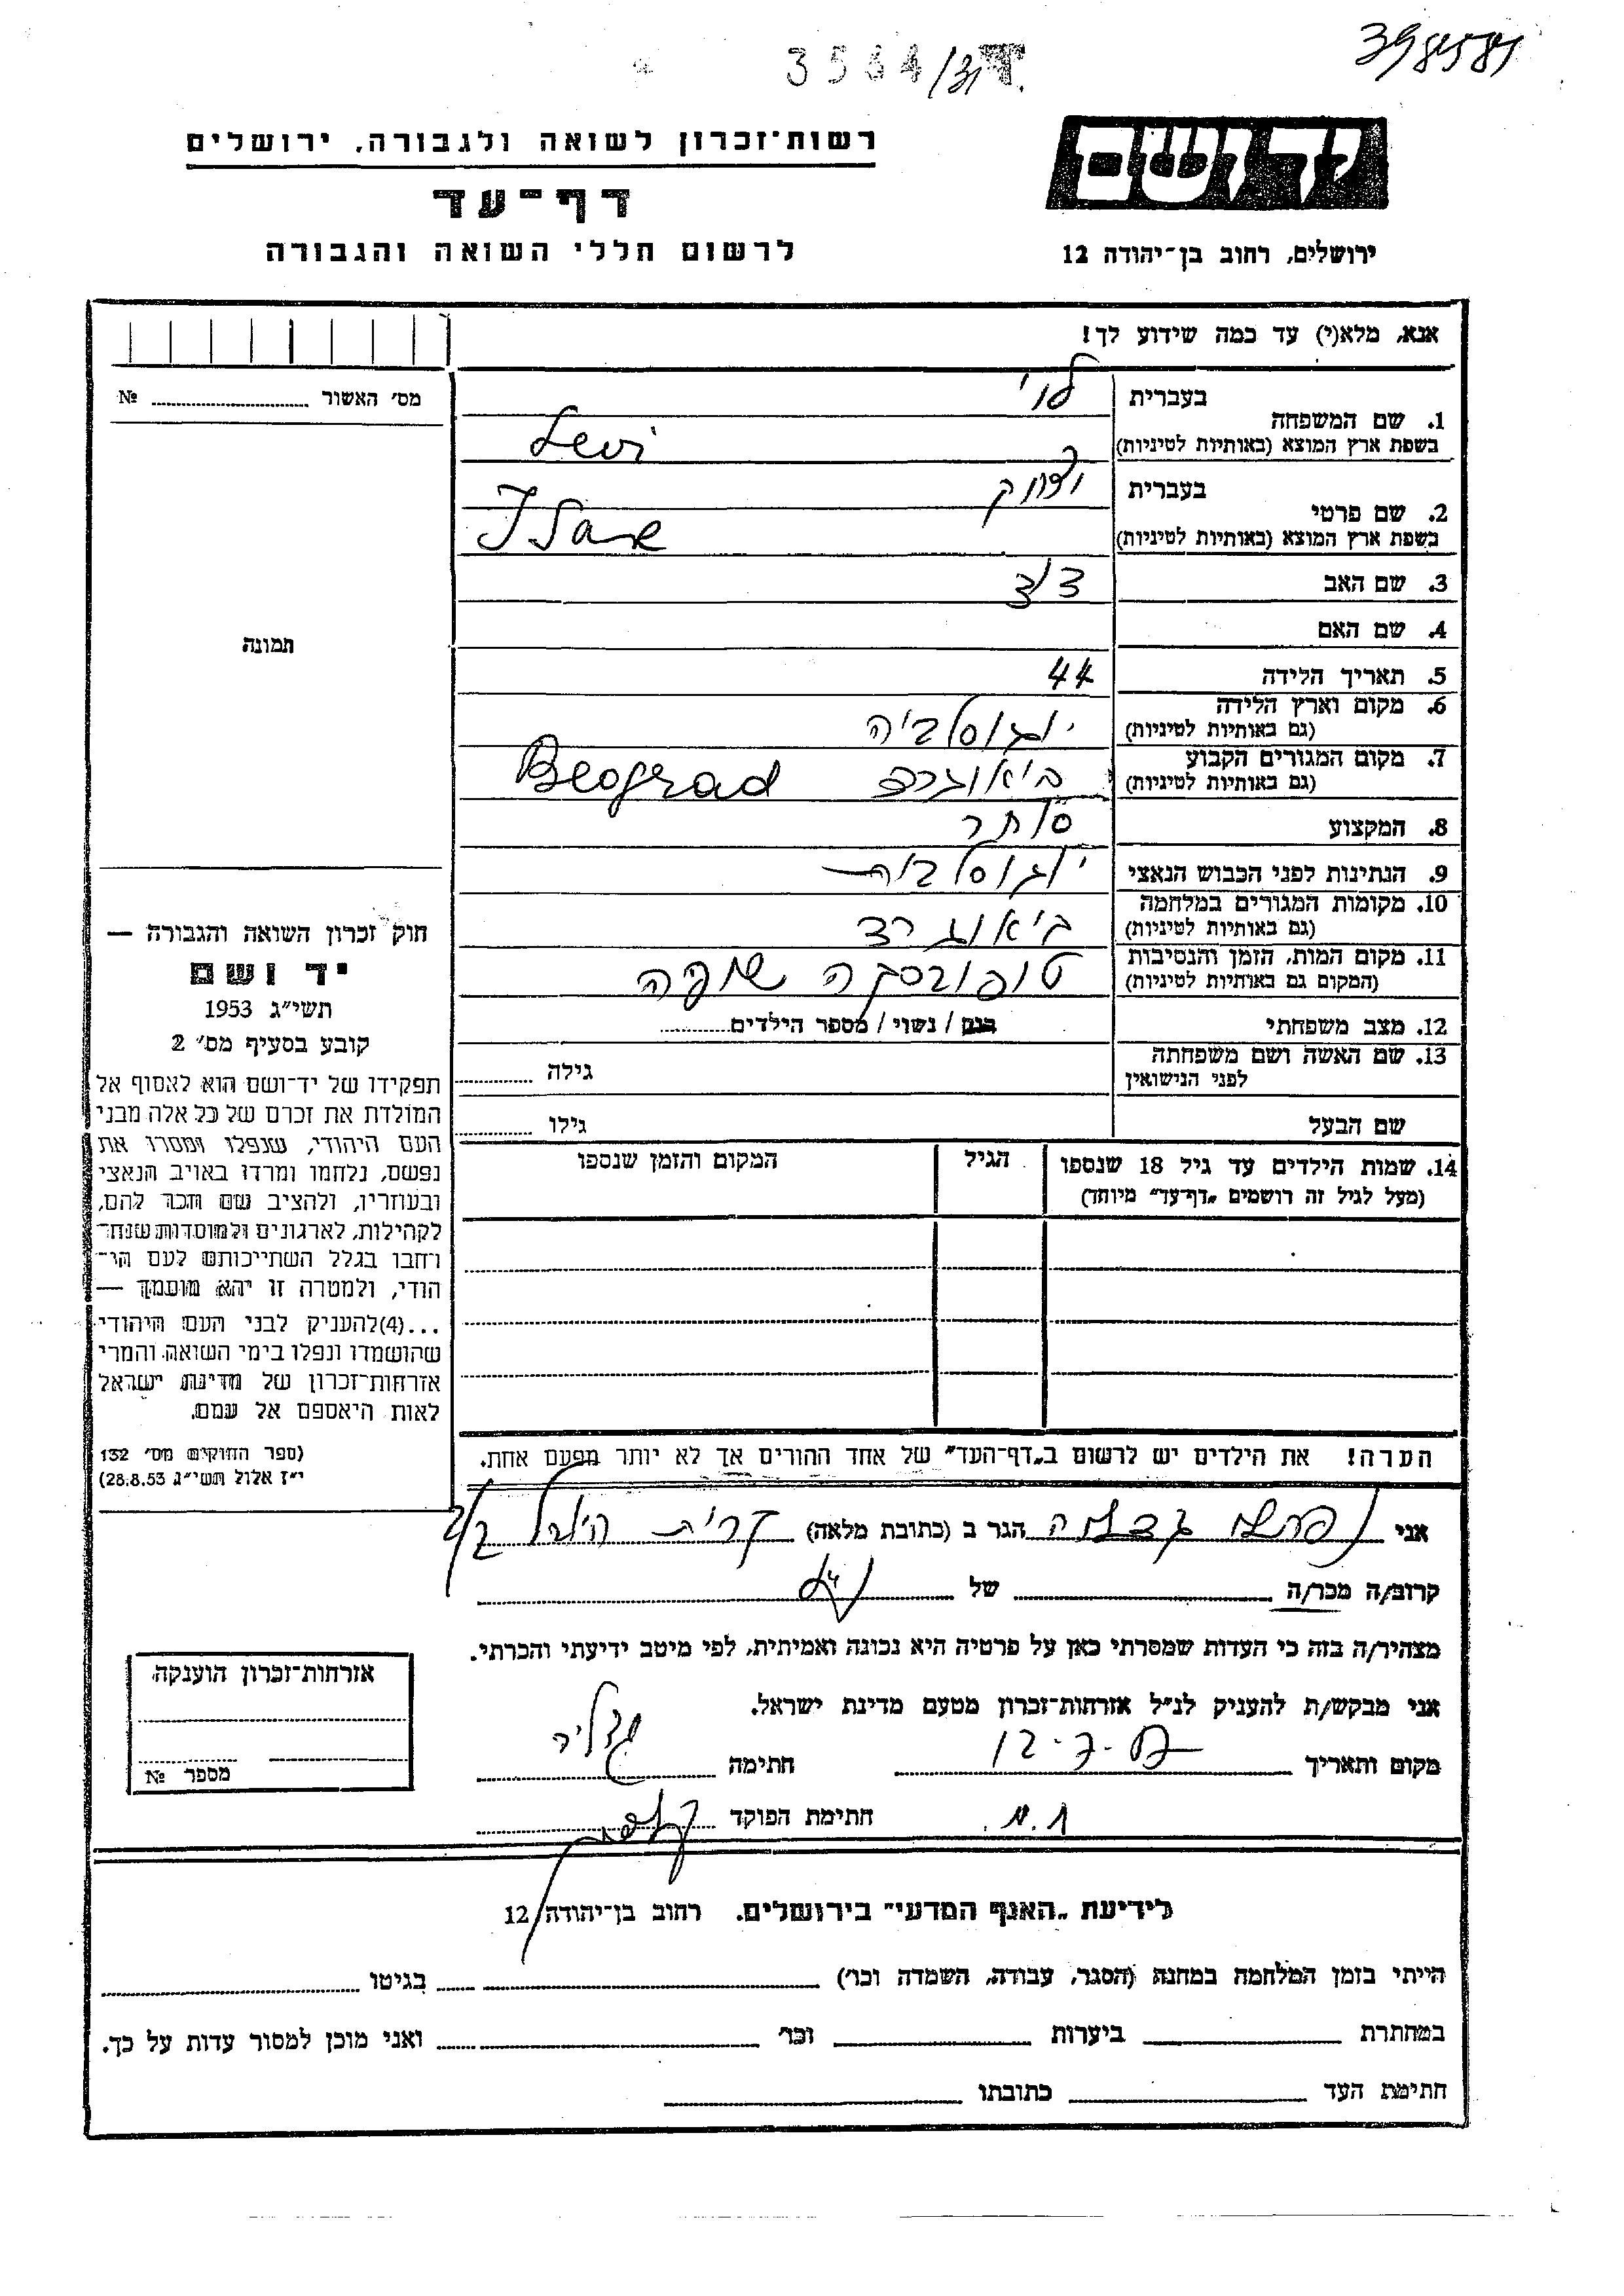 398581
3544/31
רשות־זכרון לשואה ולגבורה, ירושלים
יד ושם
דף־עד
לרשום חללי השואה והגבורה
ירושלים, רחוב בן־יהודה 12
אנא, מלא(י) עד כמה שידוע לך!
מס׳ האשור № 
1. שם המשפחה בעברית לוי
בשפת ארץ המוצא (באותיות לטיניות) Levi
2. שם פרטי בעברית יצחק
בשפת ארץ המוצא (באותיות לטיניות) Isak
3. שם האב
4. שם האם
תמונה
5. תאריך הלידה 44
6. מקום וארץ הלידה יוגוסלביה
(גם באותיות לטיניות)
7. מקום המגורים הקבוע ביאוגרד Beograd
(גם באותיות לטיניות)
8. המקצוע סוחר
9. הנתינות לפני הכבוש הנאצי יוגוסלבית
10. מקומות המגורים במלחמה ביאוגרד
(גם באותיות לטיניות)
11. מקום המות, הזמן והנסיבות טופובסקה שופה
(המקום גם באותיות לטיניות)
12. מצב משפחתי רווק / נשוי / מספר הילדים
13. שם האשה ושם משפחתה גילה
לפני הנישואין
שם הבעל גילו
14. שמות הילדים עד גיל 18 שנספו הגיל המקום והזמן שנספו
(מעל לגיל זה רושמים „דף־עד״ מיוחד)
חוק זכרון השואה והגבורה —
יד ושם
תשי״ג 1953
קובע בסעיף מס׳ 2
תפקידו של יד־ושם הוא לאסוף אל
המולדת את זכרם של כל אלה מבני
העם היהודי, שנפלו ומסרו את
נפשם, נלחמו ומרדו באויב הנאצי
ובעוזריו, ולהציב שם וזכר להם,
לקהילות, לארגונים ולמוסדות שנח־
רחבו בגלל השתייכותם לעם הי־
הודי, ולמטרה זו יהא מוסמך —
...(4)להעניק לבני העם היהודי
שהושמדו ונפלו בימי השואה והמרי
אזרחות־זכרון של מדינת ישראל
לאות היאספם אל עמם.
(ספר החוקים מס׳ 132
י״ז אלול תשי״ג 28.8.53)
הערה! את הילדים יש לרשום ב„דף־העד״ של אחד ההורים אך לא יותר מפעם אחת.
אני הגר ב (כתובת מלאה) קרית היובל
קרוב/ה מכר/ה של
מצהיר/ה בזה כי העדות שמסרתי כאן על פרטיה היא נכונה ואמיתית, לפי מיטב ידיעתי והכרתי.
אני מבקש/ת להעניק לנ״ל אזרחות־זכרון מטעם מדינת ישראל.
מקום ותאריך 12-7- חתימה
חתימת הפוקד
אזרחות־זכרון הוענקה
מספר №
לידיעת „האגף המדעי״ בירושלים. רחוב בן־יהודה 12
הייתי בזמן המלחמה במחנה (הסגר, עבודה, השמדה וכו׳) בגיטו
במחתרת ביערות וכו׳ ואני מוכן למסור עדות על כך.
חתימת העד כתובתו